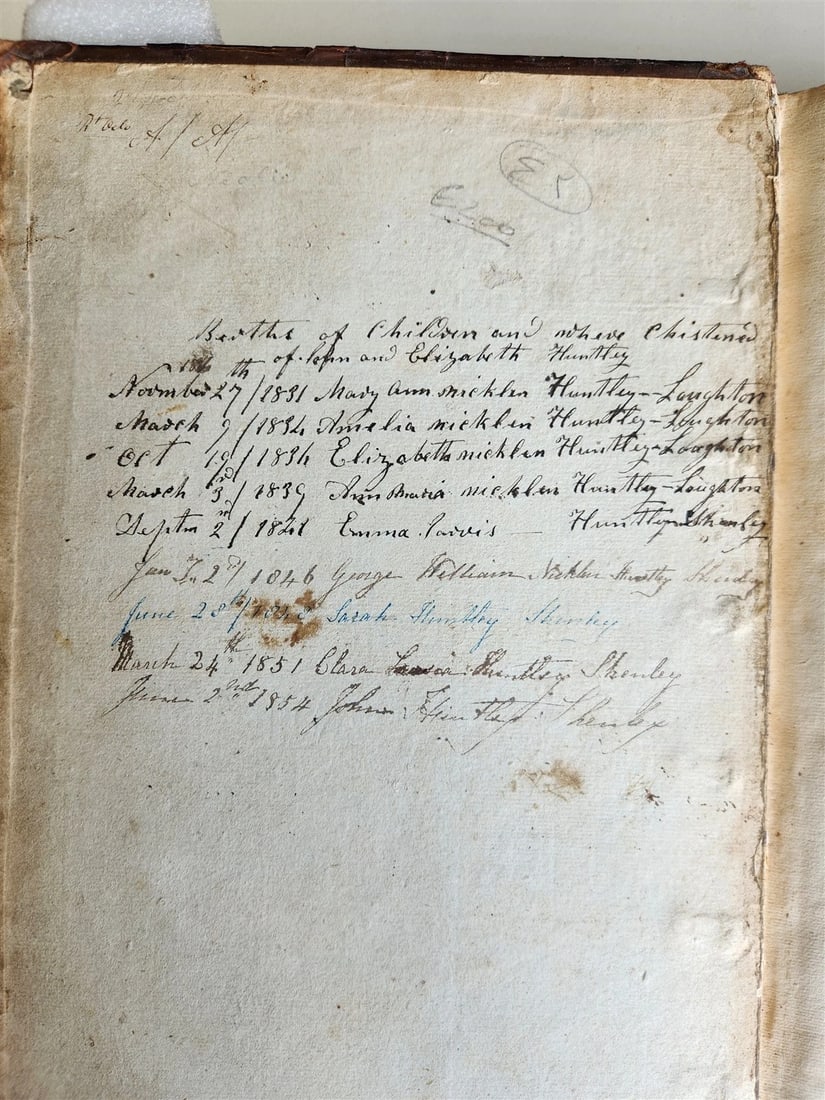 A / A/
E5
£2.00
Berths of Children and where Chistened
of John and Elizabeth Huntley
November 27th / 1831 Mary Ann nicklen Huntley - Loughton
March 9 / 1834 Amelia nicklen Huntley - Loughton
Oct 19 / 1836 Elizabeth nicklen Huntley - Loughton
March 3rd / 1839 Ann Maria nicklen Huntley - Loughton
Septm 2nd / 1841 Emma Jarvis - Huntley Shenley
Jany 2nd / 1846 George William Nicklen Huntley Shenley
June 28th / 1848 Sarah Huntley Shenley
March 24th 1851 Clara Huntley Shenley
June 2nd 1854 John Huntley Shenley